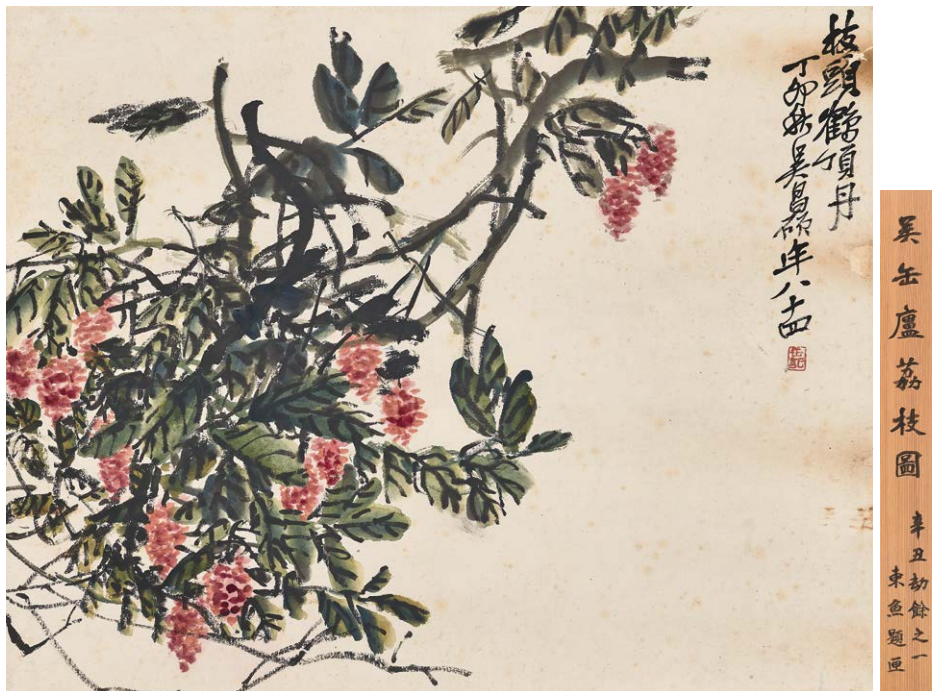 枝頭鶴頂丹
丁卯秋吳昌碩年八十四
吳缶廬荔枝圖
辛丑劫餘之一
東魚題匣